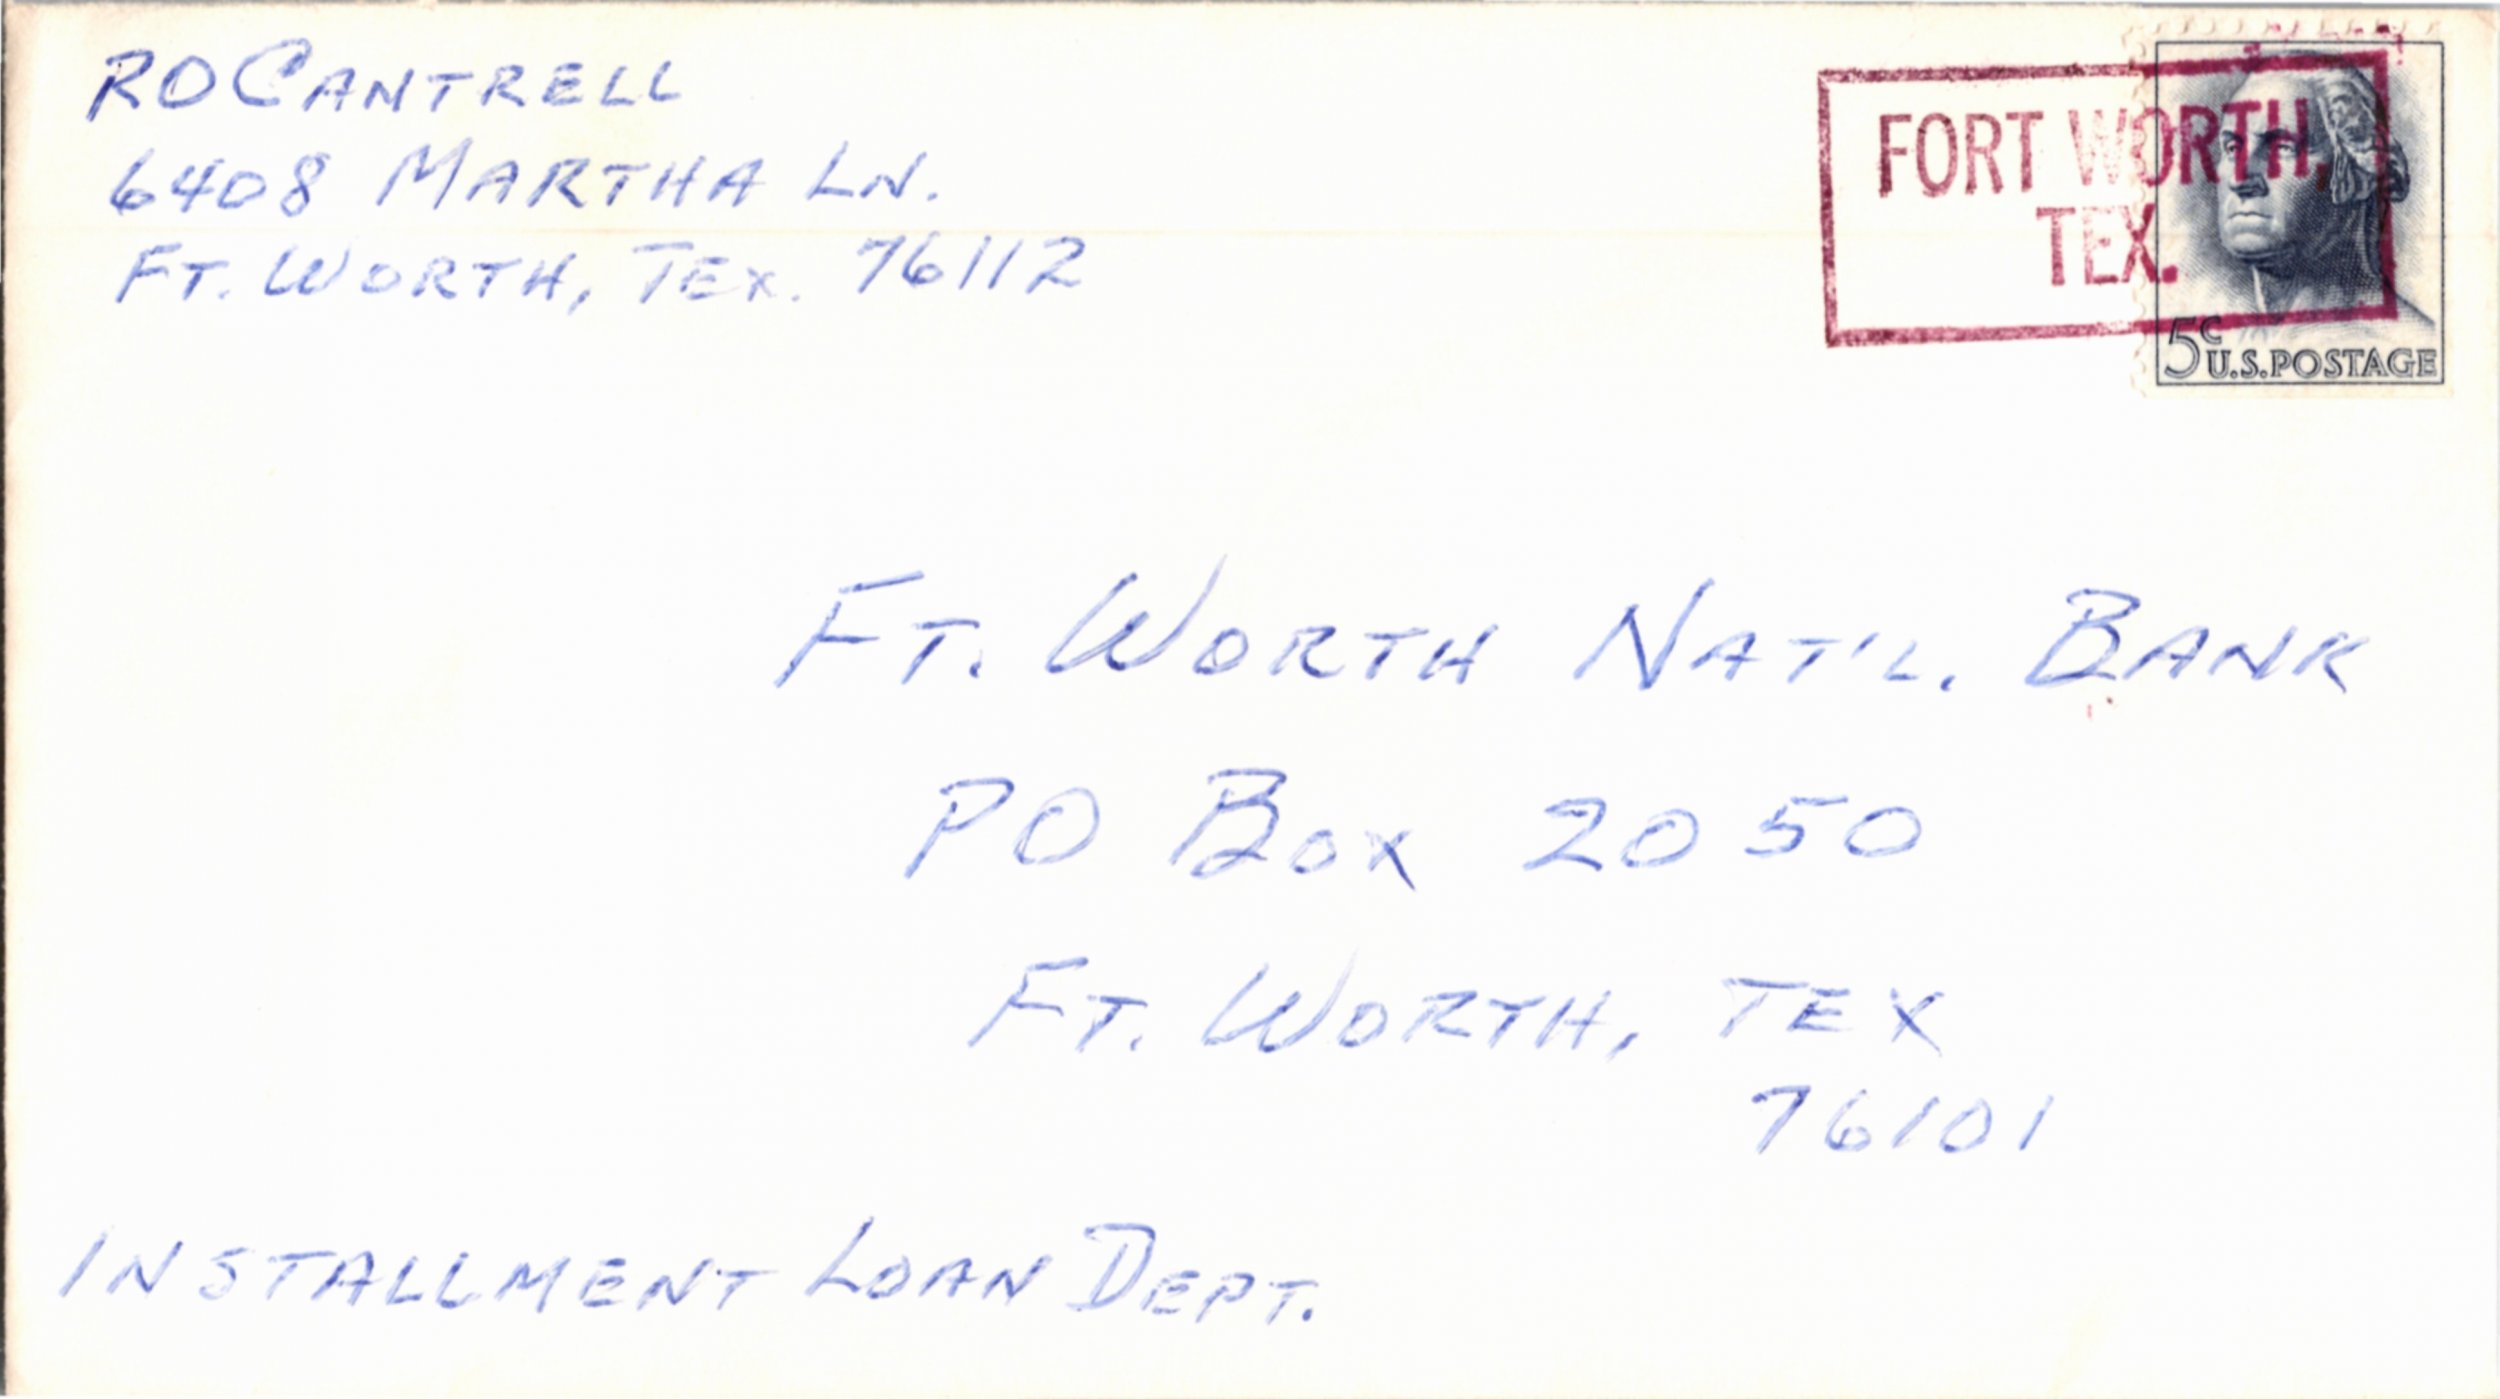 RO CANTRELL
6408 MARTHA LN.
FT. WORTH, TEX. 76112
FORT WORTH,
TEX.
5c U.S. POSTAGE
FT. WORTH NAT'L. BANK
PO BOX 2050
FT. WORTH, TEX
76101
INSTALLMENT LOAN DEPT.